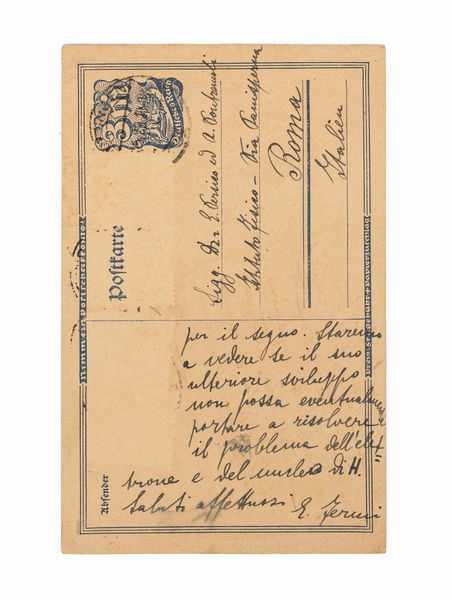 Postkarte
Deutsches Reich
Sigg. Drr E. Persico ed A. Pontremoli
Istituto Fisico - Via Panisperna
Roma
Italien
per il segno. Staremo
a vedere se il suo
ulteriore sviluppo
non possa eventualmente
portare a risolvere
il problema dell'elet=
trone e del nucleo di H.
Saluti affettuosi E. Fermi
Absender
Nimm ein Postscheckkonto